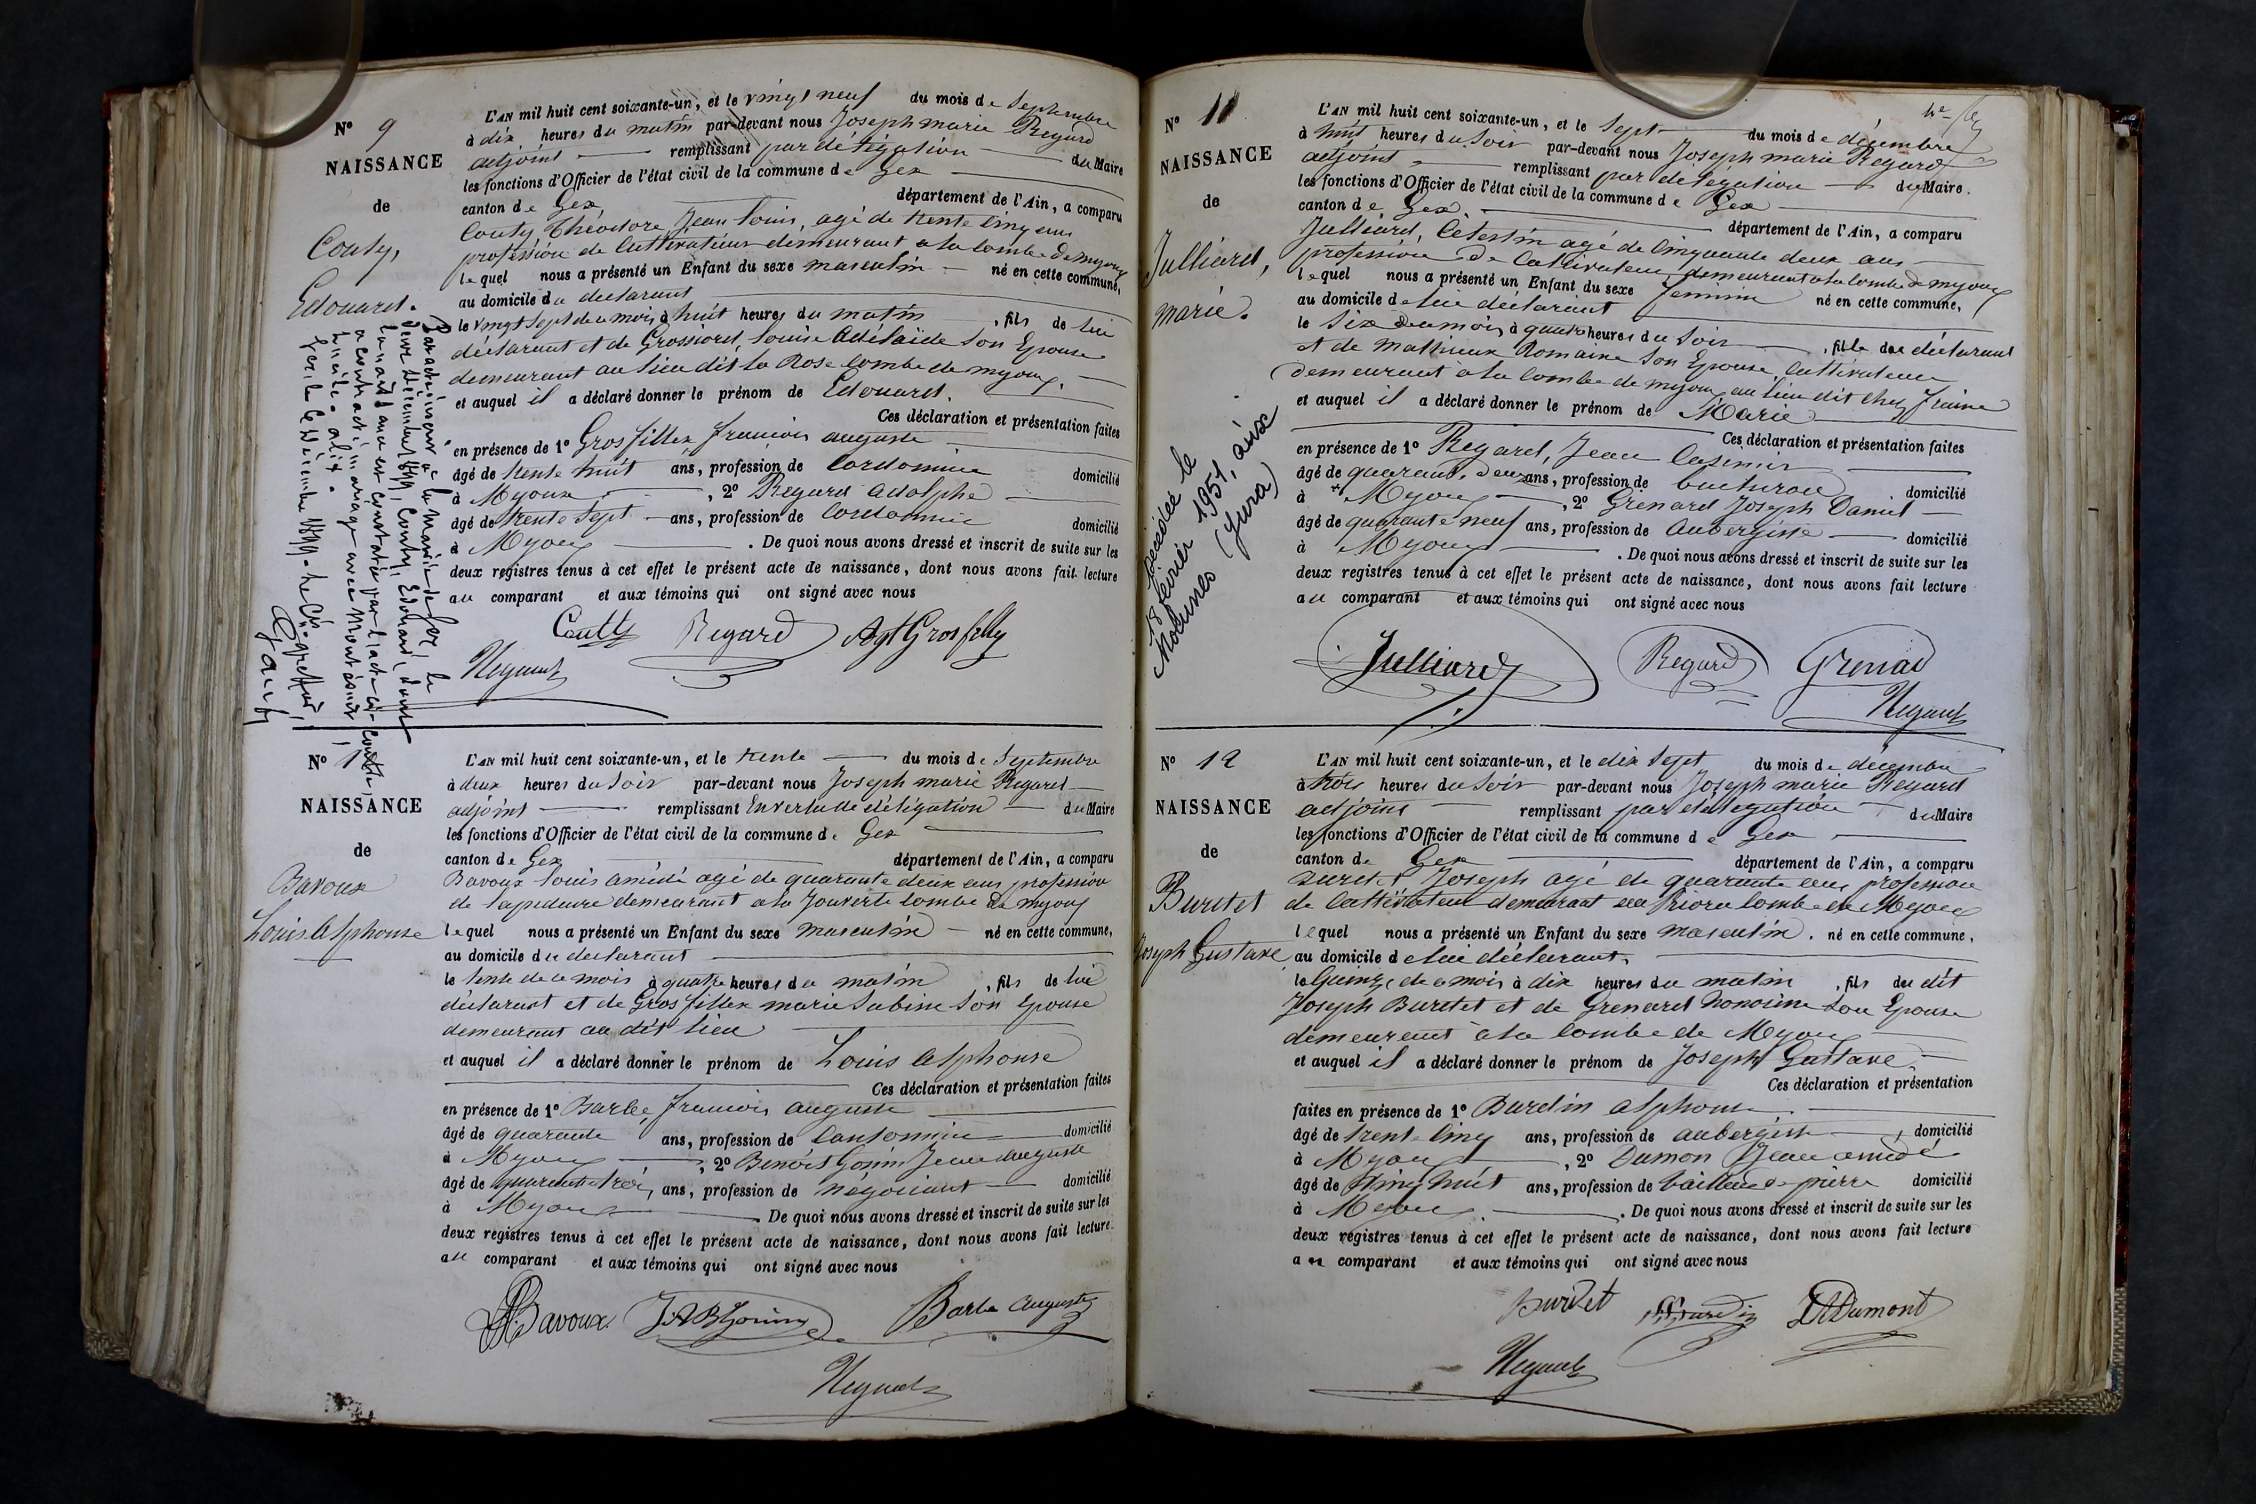 N° 9
NAISSANCE
de
Couty,
Edouard.
L'AN mil huit cent soixante-un, et le vingt neuf du mois de Septembre
à dix heures du matin par-devant nous Joseph marie Regard
adjoint remplissant par délégation du Maire
les fonctions d'Officier de l'état civil de la commune de Gex
canton de Gex département de l'Ain, a comparu
Couty Théodore Jean Louis, agé de trente cinq ans
profession de Cultivateur demeurant a la Combe de myoux
lequel nous a présenté un Enfant du sexe masculin né en cette commune,
au domicile du declarant
le vingt sept de ce mois à huit heures du matin, fils de lui
déclarant et de Grossiord, Louise Adélaïde Son Epouse
demeurant au lieu dit la Rose Combe de myoux.
et auquel il a déclaré donner le prénom de Edouard.
Ces déclaration et présentation faites
en présence de 1° Grosfillex françois auguste
âgé de trente huit ans, profession de Cordonnier domicilié
à Myoux, 2° Regard Adolphe
âgé de trente sept ans, profession de Cordonnier domicilié
à Myoux. De quoi nous avons dressé et inscrit de suite sur les
deux registres tenus à cet effet le présent acte de naissance, dont nous avons fait lecture
au comparant et aux témoins qui ont signé avec nous
Couty Regard Agt Grosfilley
Regard
Par acte inscrit à la Mairie de Gex, le
Décembre 1899, Couty, Edouard, dont
la naissance est constatée par l'acte ci-contre,
a contracté mariage avec
Gex, le Décembre 1899. Le
N° 1
NAISSANCE
de
Bavoux
Louis Alphonse
L'AN mil huit cent soixante-un, et le trente du mois de Septembre
à deux heures du Soir par-devant nous Joseph marie Regard
adjoint remplissant En vertu de délégation du Maire
les fonctions d'Officier de l'état civil de la commune de Gex
canton de Gex département de l'Ain, a comparu
Bavoux Louis amédé agé de quarante deux ans profession
de Lapidaire demeurant a la Combe de myoux
lequel nous a présenté un Enfant du sexe masculin né en cette commune,
au domicile du declarant
le trente de ce mois à quatre heures du matin, fils de lui
déclarant et de Grosfillex marie Sabine Son Epouse
demeurant au dit lieu
et auquel il a déclaré donner le prénom de Louis Alphonse
Ces déclaration et présentation faites
en présence de 1° Barbe, francois auguste
âgé de quarante ans, profession de Cantonnier domicilié
à Myoux, 2° Benoit Gonin Jean Auguste
âgé de quarante trois, ans, profession de négociant domicilié
à Myoux. De quoi nous avons dressé et inscrit de suite sur les
deux registres tenus à cet effet le présent acte de naissance, dont nous avons fait lecture
au comparant et aux témoins qui ont signé avec nous
Bavoux J.A.B. Gonin Barbe Auguste
Regard
N° 11
NAISSANCE
de
Julliard,
marie.
L'AN mil huit cent soixante-un, et le Sept du mois de décembre
à huit heures du Soir par-devant nous Joseph marie Regard
adjoint remplissant par délégation du Maire.
les fonctions d'Officier de l'état civil de la commune de Gex
canton de Gex. département de l'Ain, a comparu
Julliard, Celestin agé de Cinquante deux ans
profession de Cultivateur demeurant a la Combe de myoux
lequel nous a présenté un Enfant du sexe feminin né en cette commune,
au domicile de lui déclarant
le Six de ce mois, à quatre heures du Soir, fille du déclarant
et de Mathieux Romaine Son Epouse, Cultivateur
demeurant à la Combe de myoux au lieu dit chez
et auquel il a déclaré donner le prénom de Marie
Ces déclaration et présentation faites
en présence de 1° Regard, Jean Casimir
âgé de quarante deux ans, profession de domicilié
à Myoux, 2° Grenard Joseph Daniel
âgé de quarante neuf ans, profession de Aubergiste domicilié
à Myoux. De quoi nous avons dressé et inscrit de suite sur les
deux registres tenus à cet effet le présent acte de naissance, dont nous avons fait lecture
au comparant et aux témoins qui ont signé avec nous
Julliard Regard Grenard
Regard
Décédée le
18 février 1951, aux
Molunes (Jura)
N° 12
NAISSANCE
de
Burdet
Joseph Gustave
L'AN mil huit cent soixante-un, et le dix Sept du mois de décembre
à trois heures du Soir par-devant nous Joseph marie Regard
adjoint remplissant par délégation du Maire
les fonctions d'Officier de l'état civil de la commune de Gex
canton de Gex département de l'Ain, a comparu
Burdet Joseph agé de quarante ans profession
de Cultivateur demeurant Combe de Myoux
lequel nous a présenté un Enfant du sexe masculin. né en cette commune,
au domicile de lui déclarant.
le Quinze de ce mois à dix heures du matin, fils du dit
Joseph Burdet et de Grenard Honorine Son Epouse
demeurant à la Combe de Myoux
et auquel il a déclaré donner le prénom de Joseph Gustave
Ces déclaration et présentation
faites en présence de 1° Burdin Alphonse
âgé de trente Cinq ans, profession de aubergiste, domicilié
à Myoux, 2° Dumon Jean amédé
âgé de Vingt huit ans, profession de tailleur de pierre domicilié
à Myoux. De quoi nous avons dressé et inscrit de suite sur les
deux registres tenus à cet effet le présent acte de naissance, dont nous avons fait lecture
au comparant et aux témoins qui ont signé avec nous
Burdet Burdin Dumont
Regard